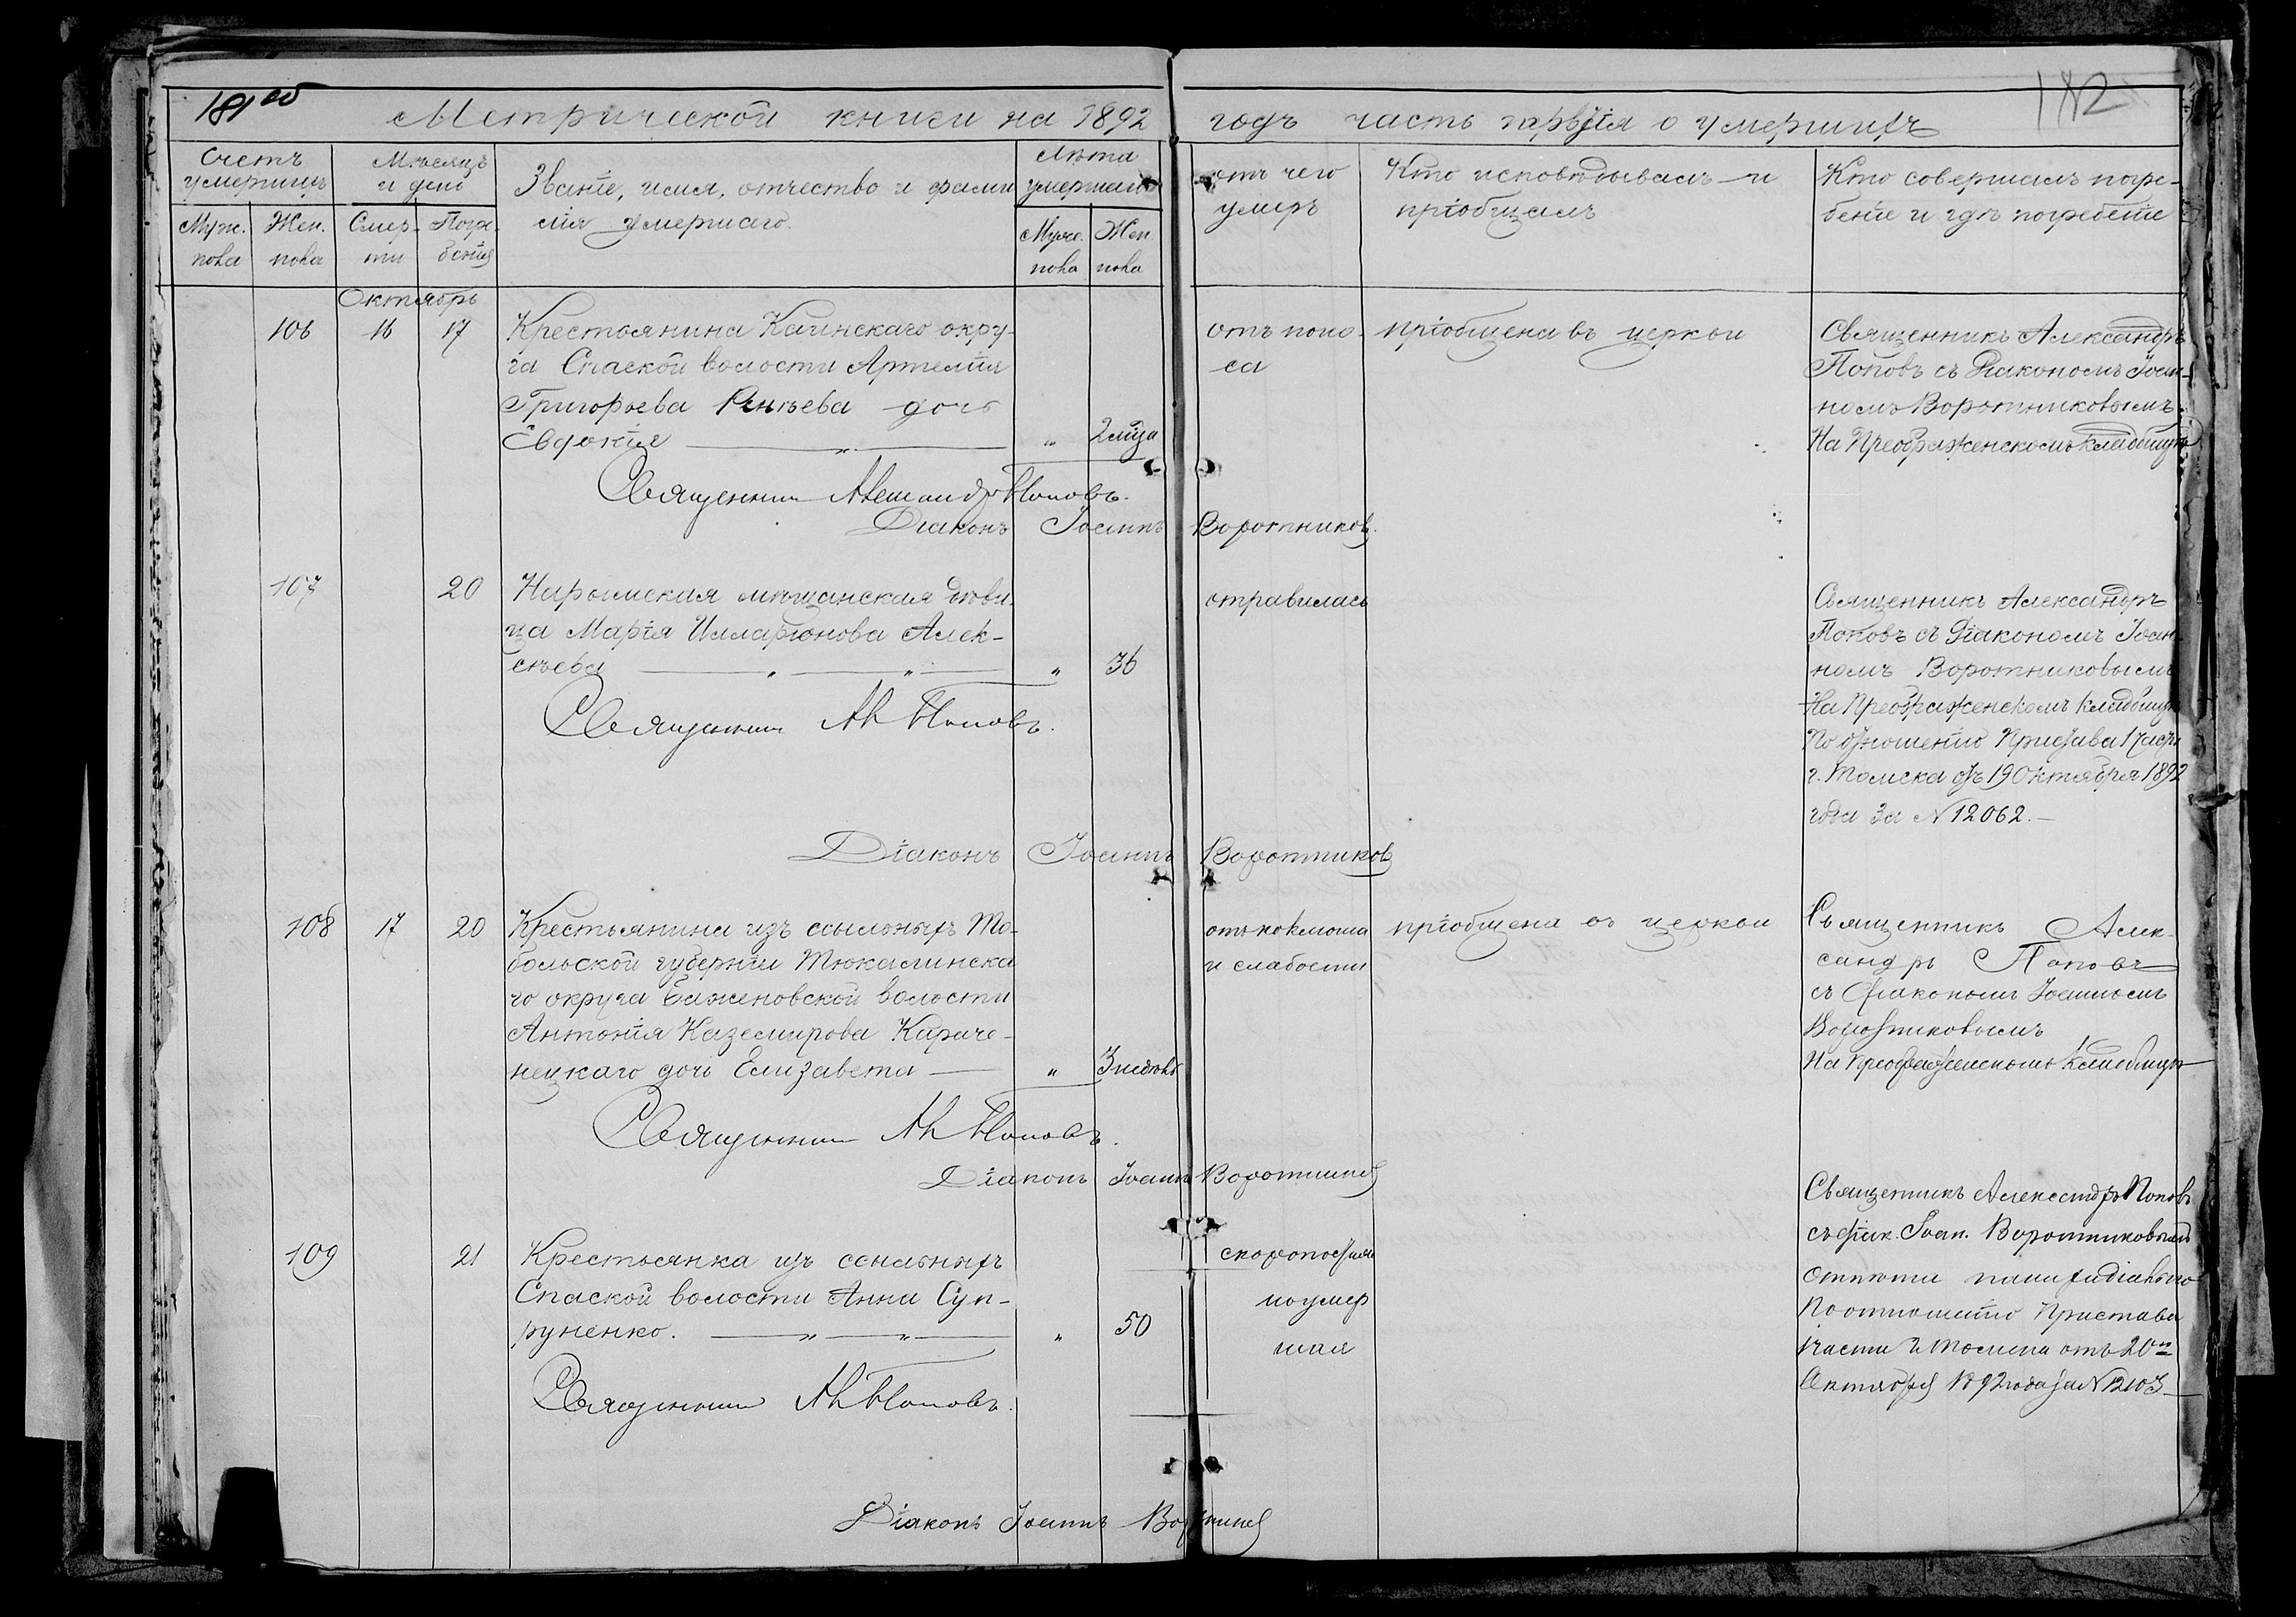 181 об
182
Метрической книги на 1892 годъ часть третія о умершихъ
Счетъ умершихъ
Муж. пола
Жен. пола
Мѣсяцъ и день
Смер-
ти
Погре-
бенія
Званіе, имя, отчество и фами
лія умершаго.
Лѣта умершаго
Муже. пола
Жен. пола
отъ чего
умеръ
Кто исповѣдывалъ и
пріобщалъ
Кто совершалъ погре-
беніе и гдѣ погребены
Октябрь
106
16
17
Крестьянина Каинскаго окру-
га Спаской волости Артемія
Григорьева дочь
Евдокія
„
2 мца
отъ поно-
са
пріобщена въ церкви
Священникъ Александръ
Поповъ съ Діакономъ Іоан-
номъ Воротниковымъ.
На Преображенскомъ кладбищѣ
Священникъ Александръ Поповъ.
Діаконъ Іоаннъ Воротниковъ.
107
20
Нарымская мѣщанская дѣви-
ца Марія Илларіонова Алек-
сѣева
„
36
отравилась
Священникъ Александръ
Поповъ съ Діакономъ Іоан
номъ Воротниковымъ
На Преображенскомъ кладбищѣ
По отношенію Пристава 1 части
г. Томска отъ 19 Октября 1892
года за N 12062.—
Священникъ Ал Поповъ.
Діаконъ Іоаннъ Воротниковъ
108
17
20
Крестьянина изъ ссыльныхъ То-
больской губерніи Тюкалинска
го округа Баженовской волости
Антонія Каземирова Караче-
нецкаго дочь Елизавета
„
3 недѣль
отъ коклюша
и слабости
пріобщена въ церкви
Священникъ Алек
сандръ Поповъ
съ Діакономъ Іоанномъ
Воротниковымъ
На Преображенскомъ кладбищѣ
Священникъ Ал Поповъ.
Діаконъ Іоаннъ Воротниковъ
109
21
Крестьянка изъ ссыльныхъ
Спаской волости Анна Суп-
руненко.
„
50
скоропостиж
но умер
шая
Священникъ Александръ Поповъ
съ діак. Іоан. Воротниковымъ
Отпѣта
По отношенію Пристава
1 части г. Томска отъ 20го
Октября 1892 года за N 12103
Священникъ Ал Поповъ.
Діаконъ Іоаннъ Воротниковъ